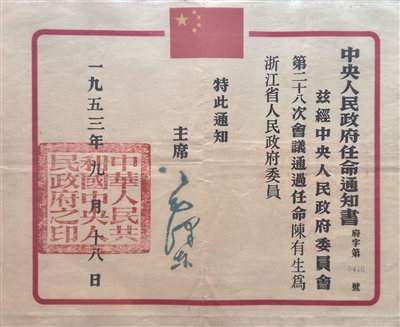 中央人民政府任命通知書
府字第 號
茲經中央人民政府委員會
第二十八次會議通過任命陳有生爲
浙江省人民政府委員
特此通知
主席 毛澤東
一九五三年九月十八日
中華人民共和國中央人民政府之印